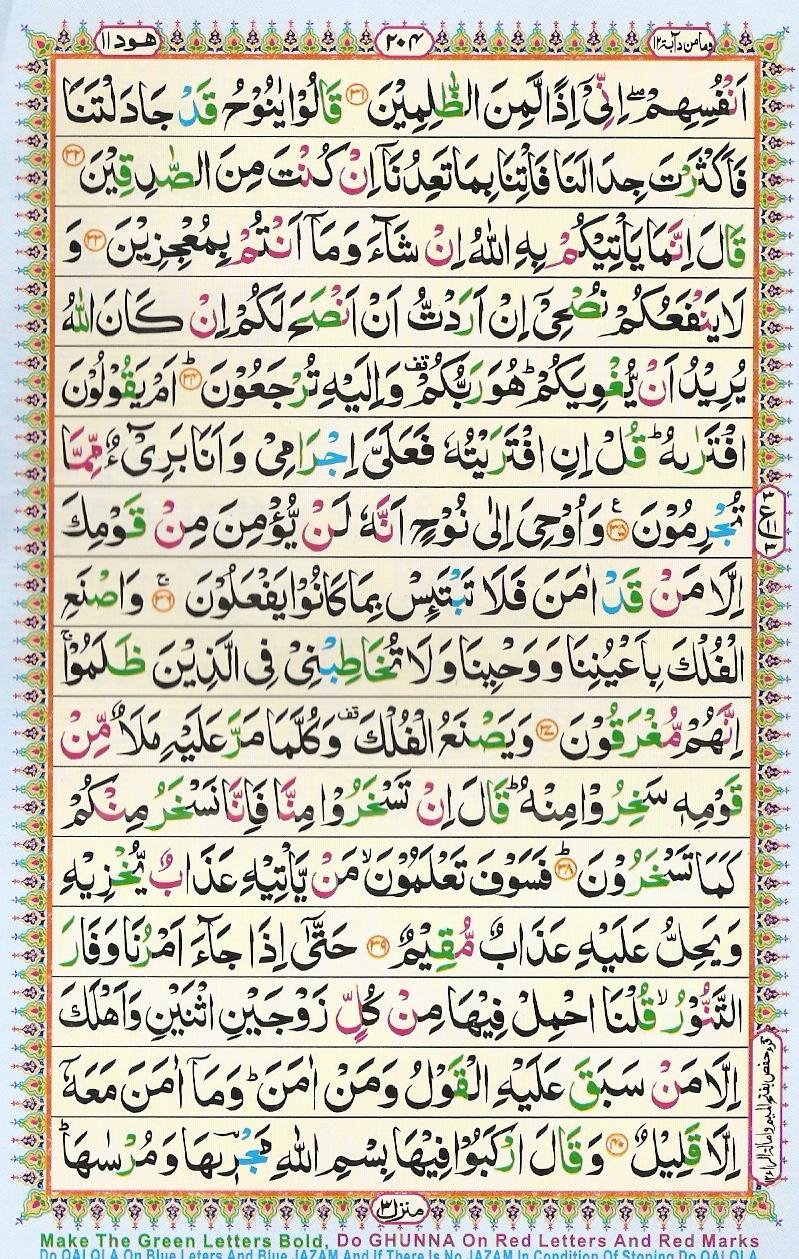 وما من دآبة ١٢ ۲۰۴ هود ١١
اَنْفُسِهِمْ ۖۚ اِنِّىْۤ اِذًا لَّمِنَ الظّٰلِمِيْنَ ۝۳۱ قَالُوْا يٰنُوْحُ قَدْ جَادَلْتَنَا
فَاَكْثَرْتَ جِدَالَنَا فَاْتِنَا بِمَا تَعِدُنَاۤ اِنْ كُنْتَ مِنَ الصّٰدِقِيْنَ ۝۳۲
قَالَ اِنَّمَا يَاْتِيْكُمْ بِهِ اللّٰهُ اِنْ شَآءَ وَمَاۤ اَنْتُمْ بِمُعْجِزِيْنَ ۝۳۳ وَ
لَا يَنْفَعُكُمْ نُصْحِىْۤ اِنْ اَرَدْتُّ اَنْ اَنْصَحَ لَكُمْ اِنْ كَانَ اللّٰهُ
يُرِيْدُ اَنْ يُّغْوِيَكُمْ ؕ هُوَ رَبُّكُمْ ۟ وَاِلَيْهِ تُرْجَعُوْنَ ؕ۝۳۴ اَمْ يَقُوْلُوْنَ
افْتَرٰىهُ ؕ قُلْ اِنِ افْتَرَيْتُهٗ فَعَلَىَّ اِجْرَامِىْ وَاَنَا بَرِىْٓءٌ مِّمَّا
تُجْرِمُوْنَ ۝۳۵ ع وَاُوْحِىَ اِلٰى نُوْحٍ اَنَّهٗ لَنْ يُّؤْمِنَ مِنْ قَوْمِكَ
اِلَّا مَنْ قَدْ اٰمَنَ فَلَا تَبْتَئِسْ بِمَا كَانُوْا يَفْعَلُوْنَ ۚ۝۳۶ وَاصْنَعِ
الْفُلْكَ بِاَعْيُنِنَا وَوَحْيِنَا وَلَا تُخَاطِبْنِىْ فِى الَّذِيْنَ ظَلَمُوْا ۚ
اِنَّهُمْ مُّغْرَقُوْنَ ۝۳۷ وَيَصْنَعُ الْفُلْكَ قف وَكُلَّمَا مَرَّ عَلَيْهِ مَلَاٌ مِّنْ
قَوْمِهٖ سَخِرُوْا مِنْهُ ؕ قَالَ اِنْ تَسْخَرُوْا مِنَّا فَاِنَّا نَسْخَرُ مِنْكُمْ
كَمَا تَسْخَرُوْنَ ؕ۝۳۸ فَسَوْفَ تَعْلَمُوْنَ ۙ مَنْ يَّاْتِيْهِ عَذَابٌ يُّخْزِيْهِ
وَيَحِلُّ عَلَيْهِ عَذَابٌ مُّقِيْمٌ ۝۳۹ حَتّٰىۤ اِذَا جَآءَ اَمْرُنَا وَفَارَ
التَّنُّوْرُ ۙ قُلْنَا احْمِلْ فِيْهَا مِنْ كُلٍّ زَوْجَيْنِ اثْنَيْنِ وَاَهْلَكَ
اِلَّا مَنْ سَبَقَ عَلَيْهِ الْقَوْلُ وَمَنْ اٰمَنَ ؕ وَمَاۤ اٰمَنَ مَعَهٗۤ
اِلَّا قَلِيْلٌ ۝۴۰ وَقَالَ ارْكَبُوْا فِيْهَا بِسْمِ اللّٰهِ مَجْرٖٮهَا وَمُرْسٰىهَا ؕ
منزل ۳
Make The Green Letters Bold, Do GHUNNA On Red Letters And Red Marks
Do QALQLA On Blue Leters And Blue JAZAM And If There Is No JAZAM In Condition Of Stoping Do QALQLA